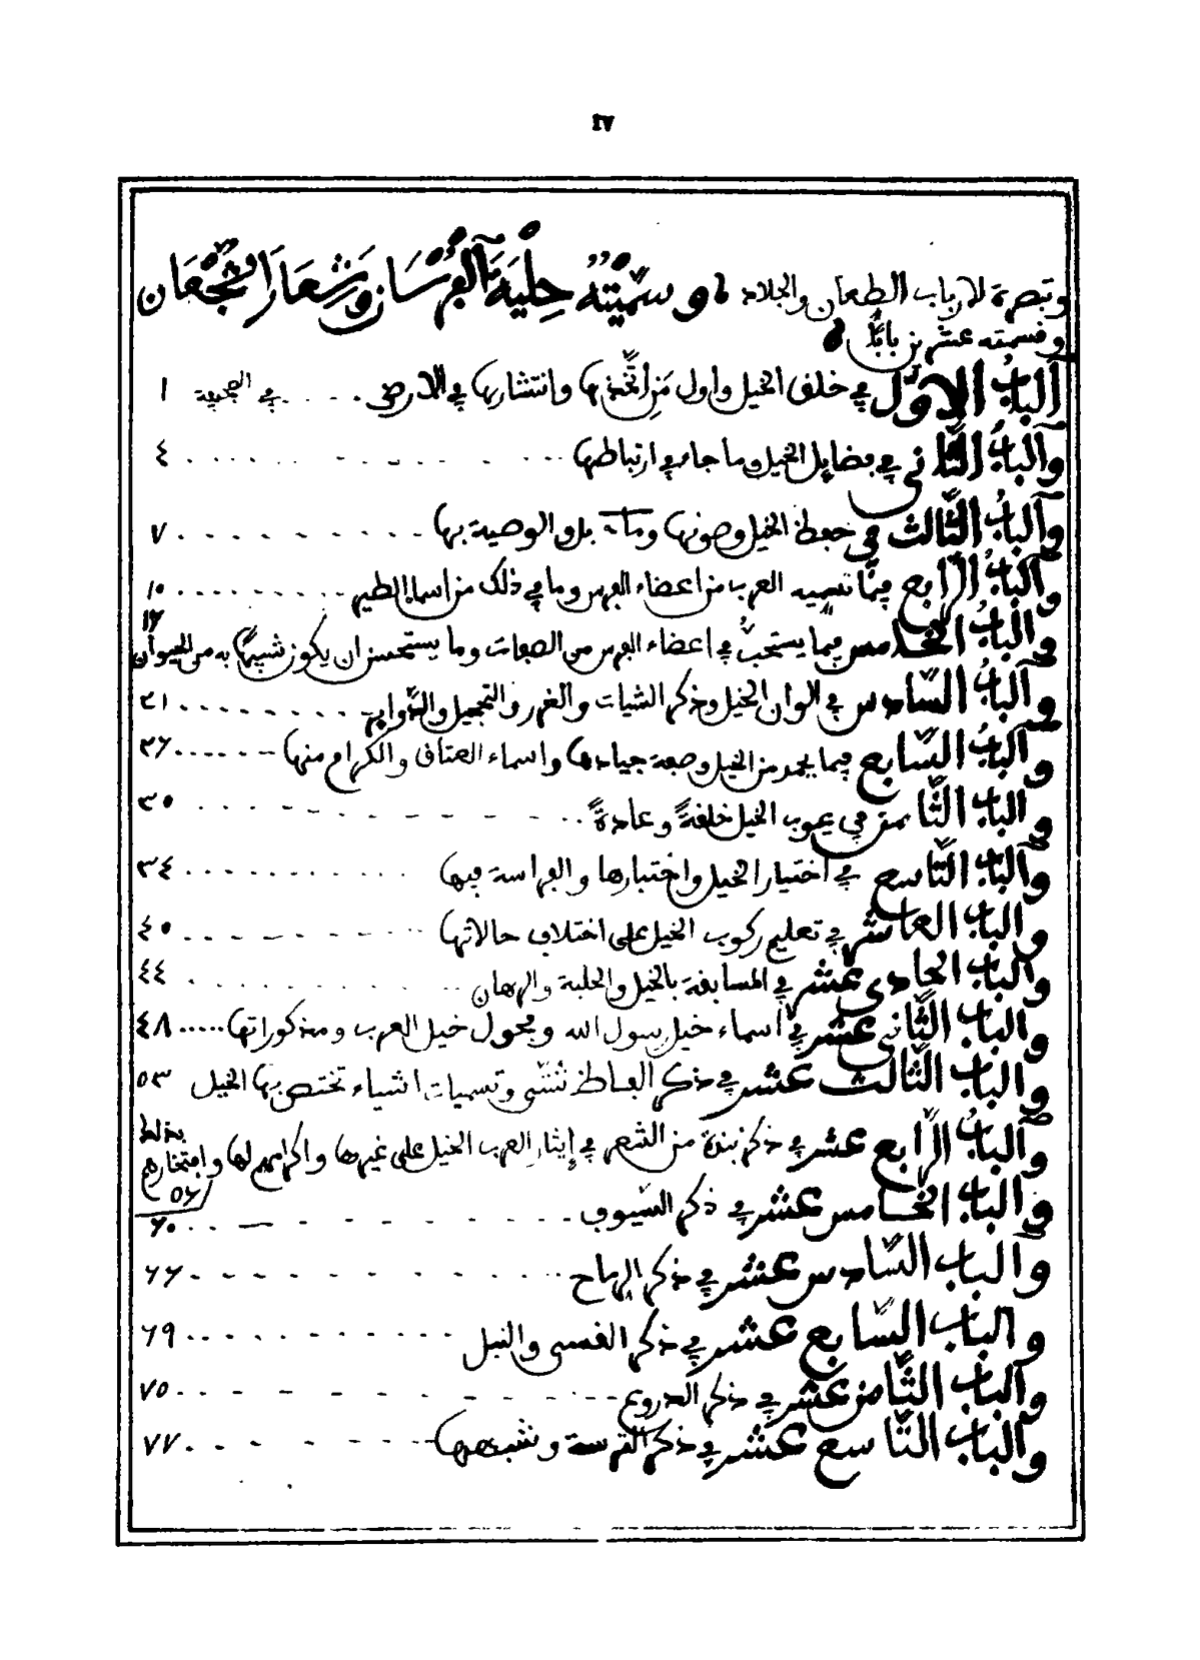 ٤٧
وتبصرة لارباب الطعان والجلاد، وسَمَّيْتُهُ حِلْيَةَ الفُرْسَانِ وَشِعَارَ الشُّجْعَانِ
وقسمته عشرين باباً
الباب الاوّل في خلق الخيل واول مَن اتّخذها وانتشارها في الارض . . . . . في الصحيفة ١
والباب الثّاني في فضايل الخيل وما جاء في ارتباطها ٤
والباب الثّالث في حفظ الخيل وصونها وما بل والوصية بها ٧
والباب الرّابع فيما تسميه العرب من اعضاء الفرس وما في ذلك من اسماء الطير ١٠
والباب الخامس فيما يستحبّ في اعضاء الفرس من الصفات وما يستحسن ان يكون شبيهًا به من الحيوان ١٦
والباب السّادس في الوان الخيل وذكر الشيات والغرر والتحجيل والدّواير ٢١
والباب السّابع فيما يحمد من الخيل وصفة جيادها واسماء العتاق والكرام منها ٢٦
والباب الثّامن في عيوب الخيل خلقةً وعادةً ٣٠
والباب التّاسع في اختيار الخيل واختبارها والفراسة فيها ٣٤
والباب العاشر في تعليم ركوب الخيل على اختلاف حالاتها ٤٠
والباب الحادي عشر في المسابقة بالخيل والحلبة والرهان ٤٤
والباب الثّاني عشر في اسماء خيل رسول الله وفحول خيل العرب ومذكوراتها ٤٨
والباب الثّالث عشر في ذكر الفاظ شتّى وتسميات اشياء تختص بها الخيل ٥٣
والباب الرّابع عشر في ذكر نبذة من الشعر في إيثار العرب الخيل على غيرها واكرامهم لها وافتخارهم بذلك ٥٦
والباب الخامس عشر في ذكر السّيوف ٦٠
والباب السّادس عشر في ذكر الرماح ٦٦
والباب السّابع عشر في ذكر القسي والنبل ٦٩
والباب الثّامن عشر في ذكر الدروع ٧٥
والباب التّاسع عشر في ذكر الترسة وشبهها ٧٧